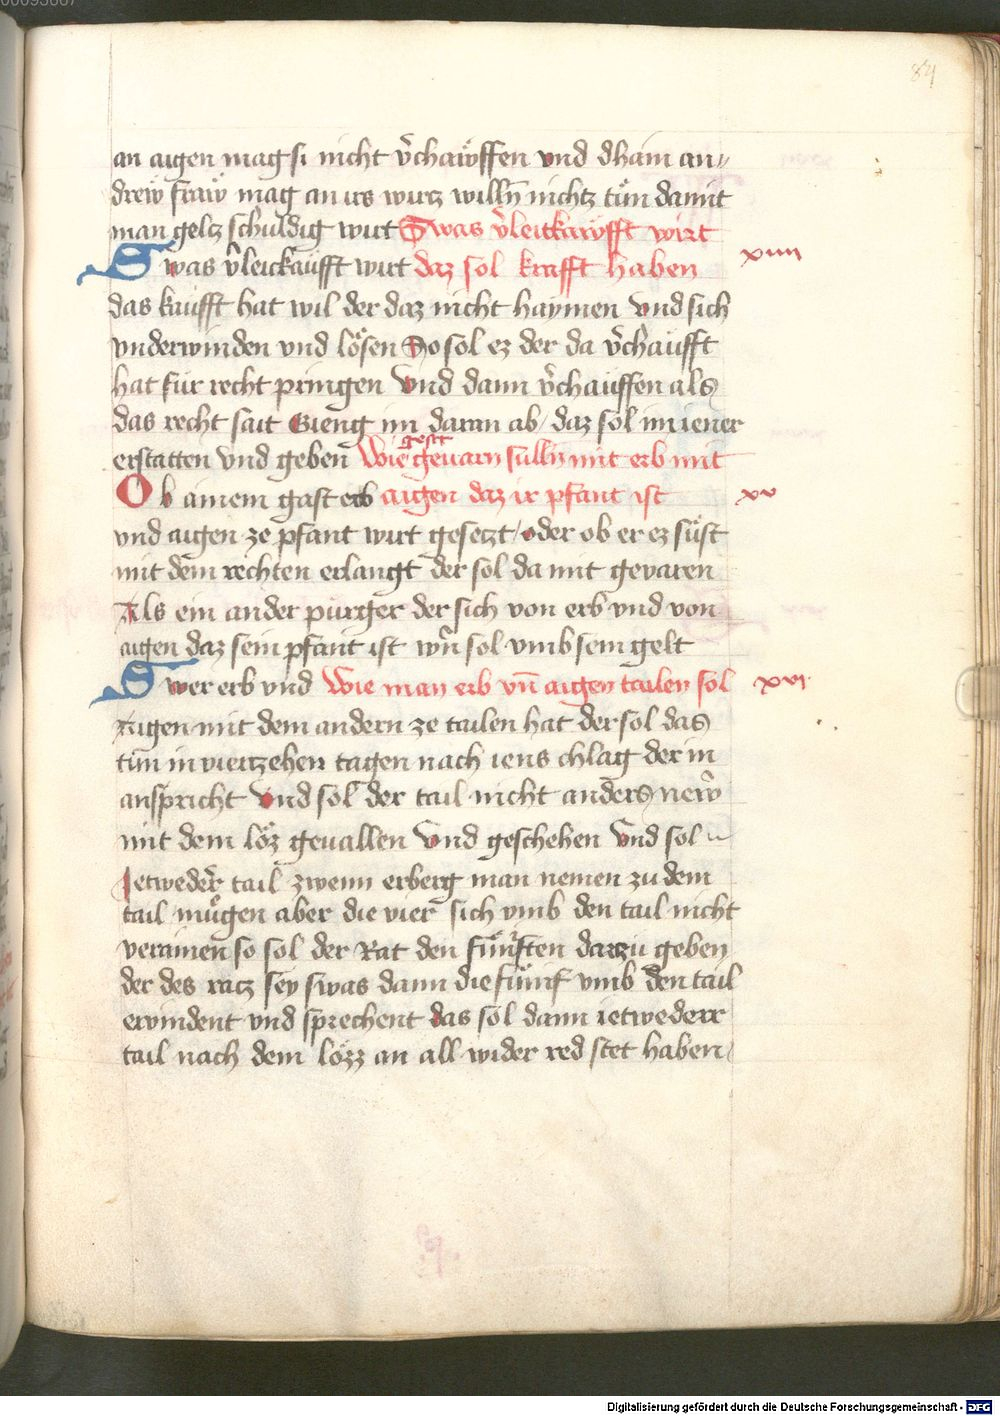 84
an aigen mag si nicht v̄chaüffen vnd dhain an//
drew fraw mag an irs wircz willn̄ nichtz tůn damit
man geltz schuldig wirt Swas v̄leitkaufft wirt
Swas v̄leickaufft wirt daz sol krafft haben xiiii
das kaufft hat wil der daz nicht haymen vnd sich
vnderwinden vnd lösen So sol ez der da v̄chaufft
hat für recht pringen Vnd dann v̄chauffen als
das recht sait Gieng im daran ab / daz sol im iener
erstatten vnd geben Wie gest geuarn sulln mit erb mit
Ob ainem gast erb aigen daz ir pfant ist xv
vnd aigen ze pfant wirt gesetzt / oder ob er ez süst
mit dem rechten erlangt der sol da mit gevaren
Als ein ander purger der sich von erb vnd von
aigen daz sein pfant ist wn̄ sol vmb sein gelt
Swer erb vnd Wie man erb vn̄ aigen tailen sol xvi
Aigen mit dem andern ze tailen hat der sol das
tůn in vierzehen tagen nach iens chlag der in
anspricht Vnd sol der tail nicht anders newr
mit dem löz geuallen Vnd geschehen Vnd sol
Ietweder tail zwenn erberg man nemen zu dem
tail mügen aber die vier sich vmb den tail nicht
verainen so sol der Rat den fünften darzu geben
der des racz sey swas dann die fünf vmb den tail
ervindent vnd sprechent das sol dann ietwederr
tail nach dem lözz an all wider red stet haben /
Digitalisierung gefördert durch die Deutsche Forschungsgemeinschaft - DFG